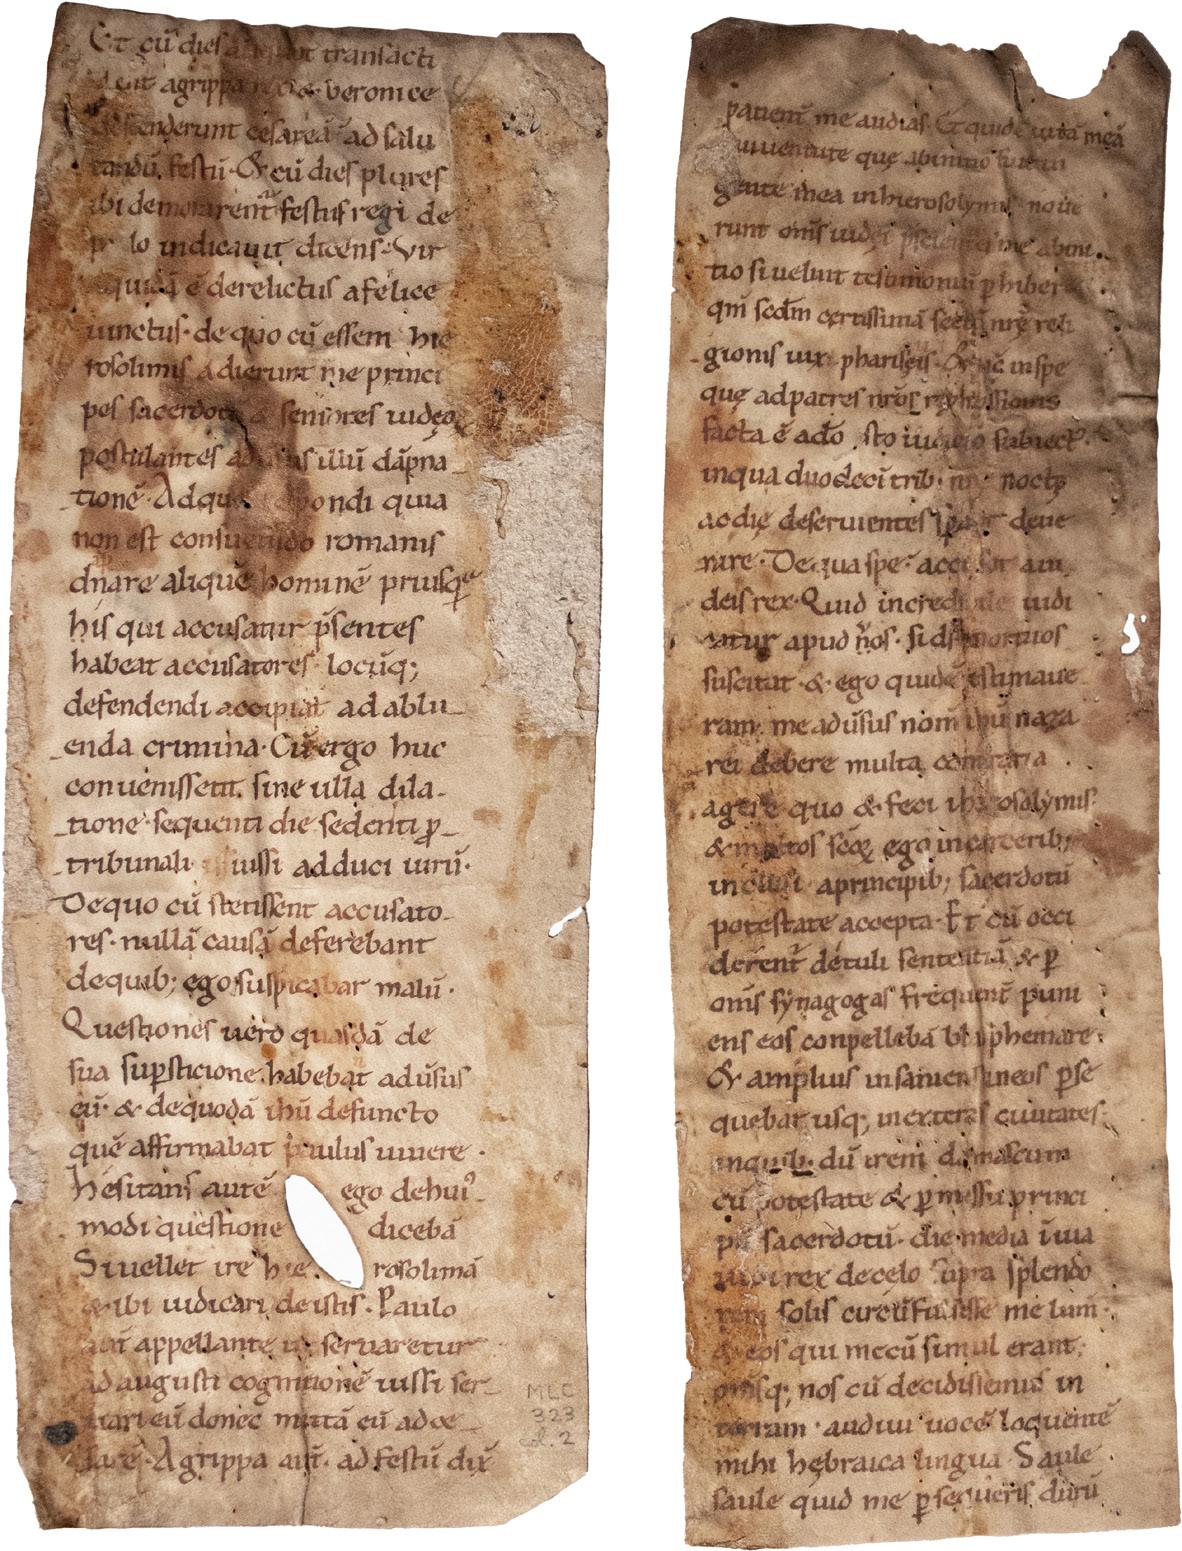 Et cū dies transacti
agrippa & beronice
descenderunt cesareā ad salu
tandū festū · & cū dies plures
ibi demorarent festus regi de
lo indicauit dicens · Vir
quidā ē derelictus a felice
uinctus · de quo cū essem hie
rosolimis adierunt me princi
pes sacerdotū & seniores iudeo
postulantes illiū dāpna
tionē · Ad qu pondi quia
non est consuetudo romanis
dnare aliquē hominē priusq
his qui accusatur p̄sentes
habeat accusatores · locūq;
defendendi accipiat ad ablu
enda crimina · Cū ergo huc
conuenissent sine ulla dila-
tione · sequenti die sedenti ꝓ
tribunali iussi adduci uirū ·
De quo cū stetissent accusato
res · nullā causā deferebant
de quib; ego suspicabar malū ·
Questiones uero quasdā de
sua supsticione habebāt aduſus
eū · & de quodā ihū defuncto
quē affirmabat paulus uiuere ·
Hesitans autē ego de hui
modi questione dicebā
Si uellet ire hie rosolimā
& ibi iudicari de istis · Paulo
aūt appellante ut seruaretur
ad augusti cognitionē iussi ser
uari eū donec mittā eū ad ce
sarē · Agrippa aūt · ad festū dix
MLC
323
col. 2
patient me audias · Et quidē uitā meā
iuuentute que ab initio fuit in
gente mea in hierosolymis noue
runt om̄s iudęi me ab ini
tio si uelint testimoniū phiber
qm̄ scdm certissimā sectā nrę reli
gionis uixi phariseis · & nc̄ in spe
que ad patres nr̄os repmissionis
facta ē a do sto iudicio subiect
in qua duodeci trib nr̄ę nocte
ac die deseruientes sperant deue
nire · De qua spe · accusor a iu
deis rex · Quid incredibile iudi
catur apud uos · si ds mortuos
suscitat · & ego quidē estimaue
ram me aduſus nom̄ ihū naza
rei debere multa contraria
agere quo & feci ihierosolymis
& multos scōꝝ ego in carcerib;
inclusi a principib; sacerdotū
potestate accepta · Et cū occi
derent detuli sententiā & p
om̄s synagogas frequent puni
ens eos conpellebā blasphemare ·
& amplius insaniens in eos pse
quebar usq; in exteras ciuitates ·
in quib; dū irem damascum
cū potestate & pmissu princi
pū sacerdotū · die media ī uia
uidi rex de celo supra splendo
rem solis circūfulsisse me lum
& eos qui mecū simul erant ·
om̄sq; nos cū decidissemus in
terram · audiui uocē loquentē
mihi hebraica lingua · Saule
saule quid me psequeris durū